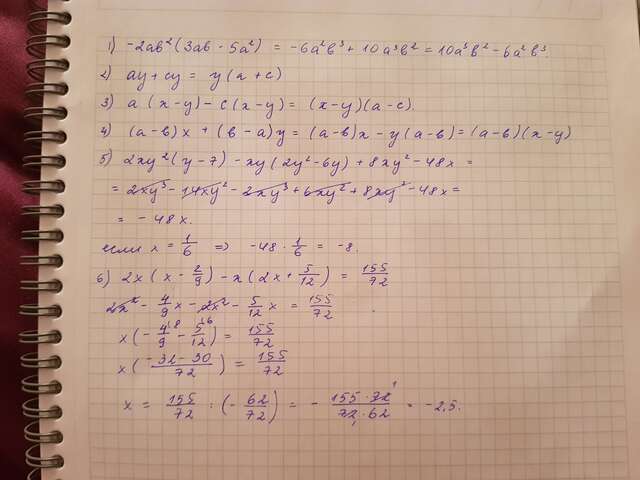 1) -2ab²(3ab - 5a²) = -6a²b³ + 10a³b² = 10a³b² - 6a²b³.
2) ay + cy = y(a + c)
3) a(x - y) - c(x - y) = (x - y)(a - c).
4) (a - b)x + (b - a)y = (a - b)x - y(a - b) = (a - b)(x - y)
5) 2xy²(y - 7) - xy(2y² - 6y) + 8xy² - 48x =
= 2xy³ - 14xy² - 2xy³ + 6xy² + 8xy² - 48x =
= - 48x.
если x = 1/6 ⇒ -48 · 1/6 = -8.
6) 2x(x - 2/9) - x(2x + 5/12) = 155/72
2x² - 4/9 x - 2x² - 5/12 x = 155/72
x(- 4/9 - 5/12) = 155/72
x(- (-32 - 30)/72) = 155/72
x = 155/72 : (- 62/72) = - (155 · 72)/(72 · 62) = -2,5.